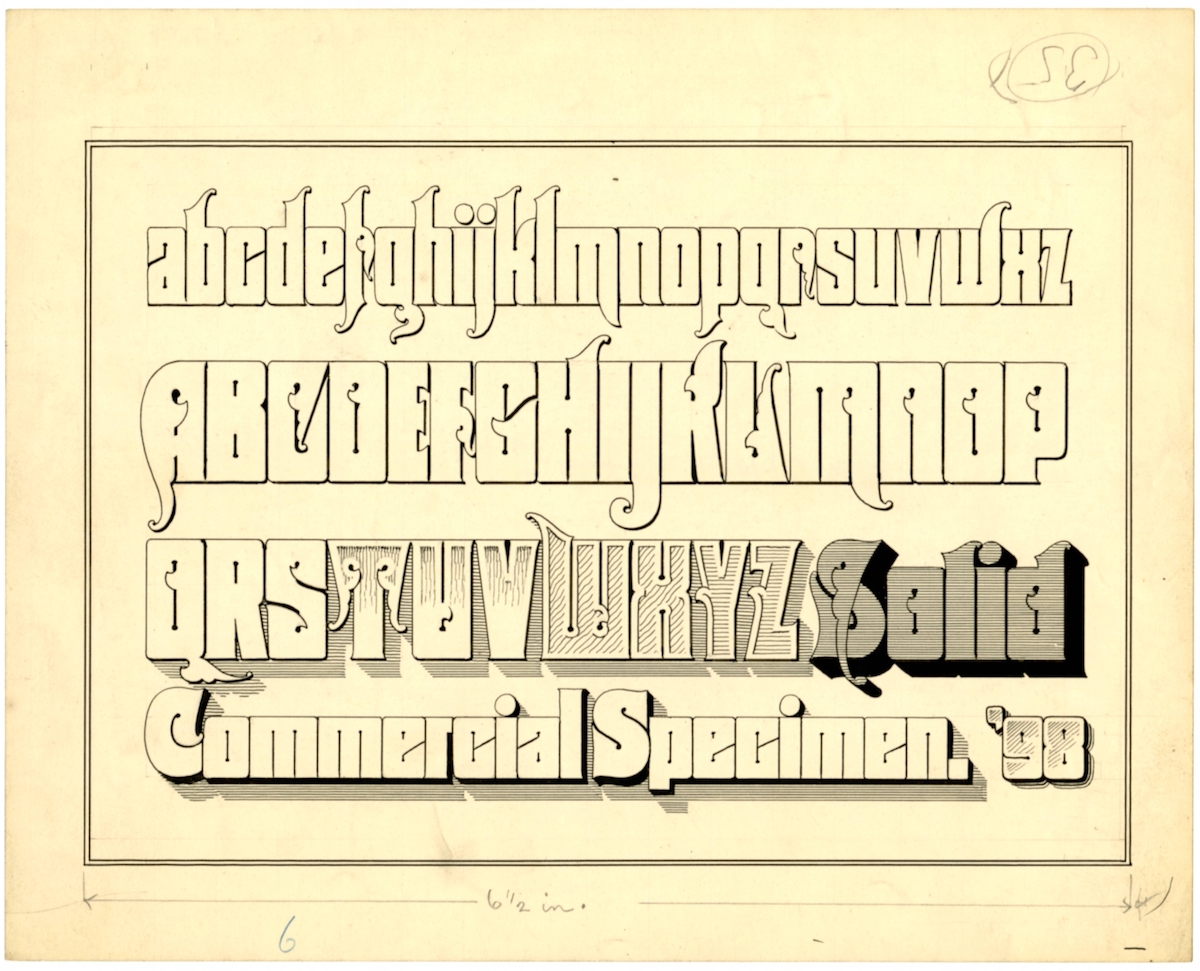 abcdefghijklmnopqrsuvwxz
ABCDEFGHIJKLMNOP
QRSTUVWXYZ Solid
Commercial Specimen. '98
6 1/2 in.
6